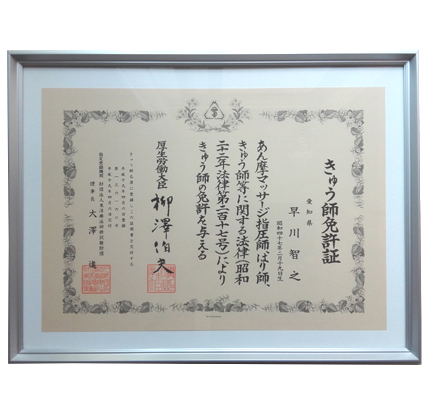 きゅう師免許証
愛知県
早川智之
昭和四十七年二月十九日生
あん摩マッサージ指圧師、はり師、
きゅう師等に関する法律(昭和
二十二年法律第二百十七号)により
きゅう師の免許を与える
厚生労働大臣
柳澤伯夫
理事長 大澤進